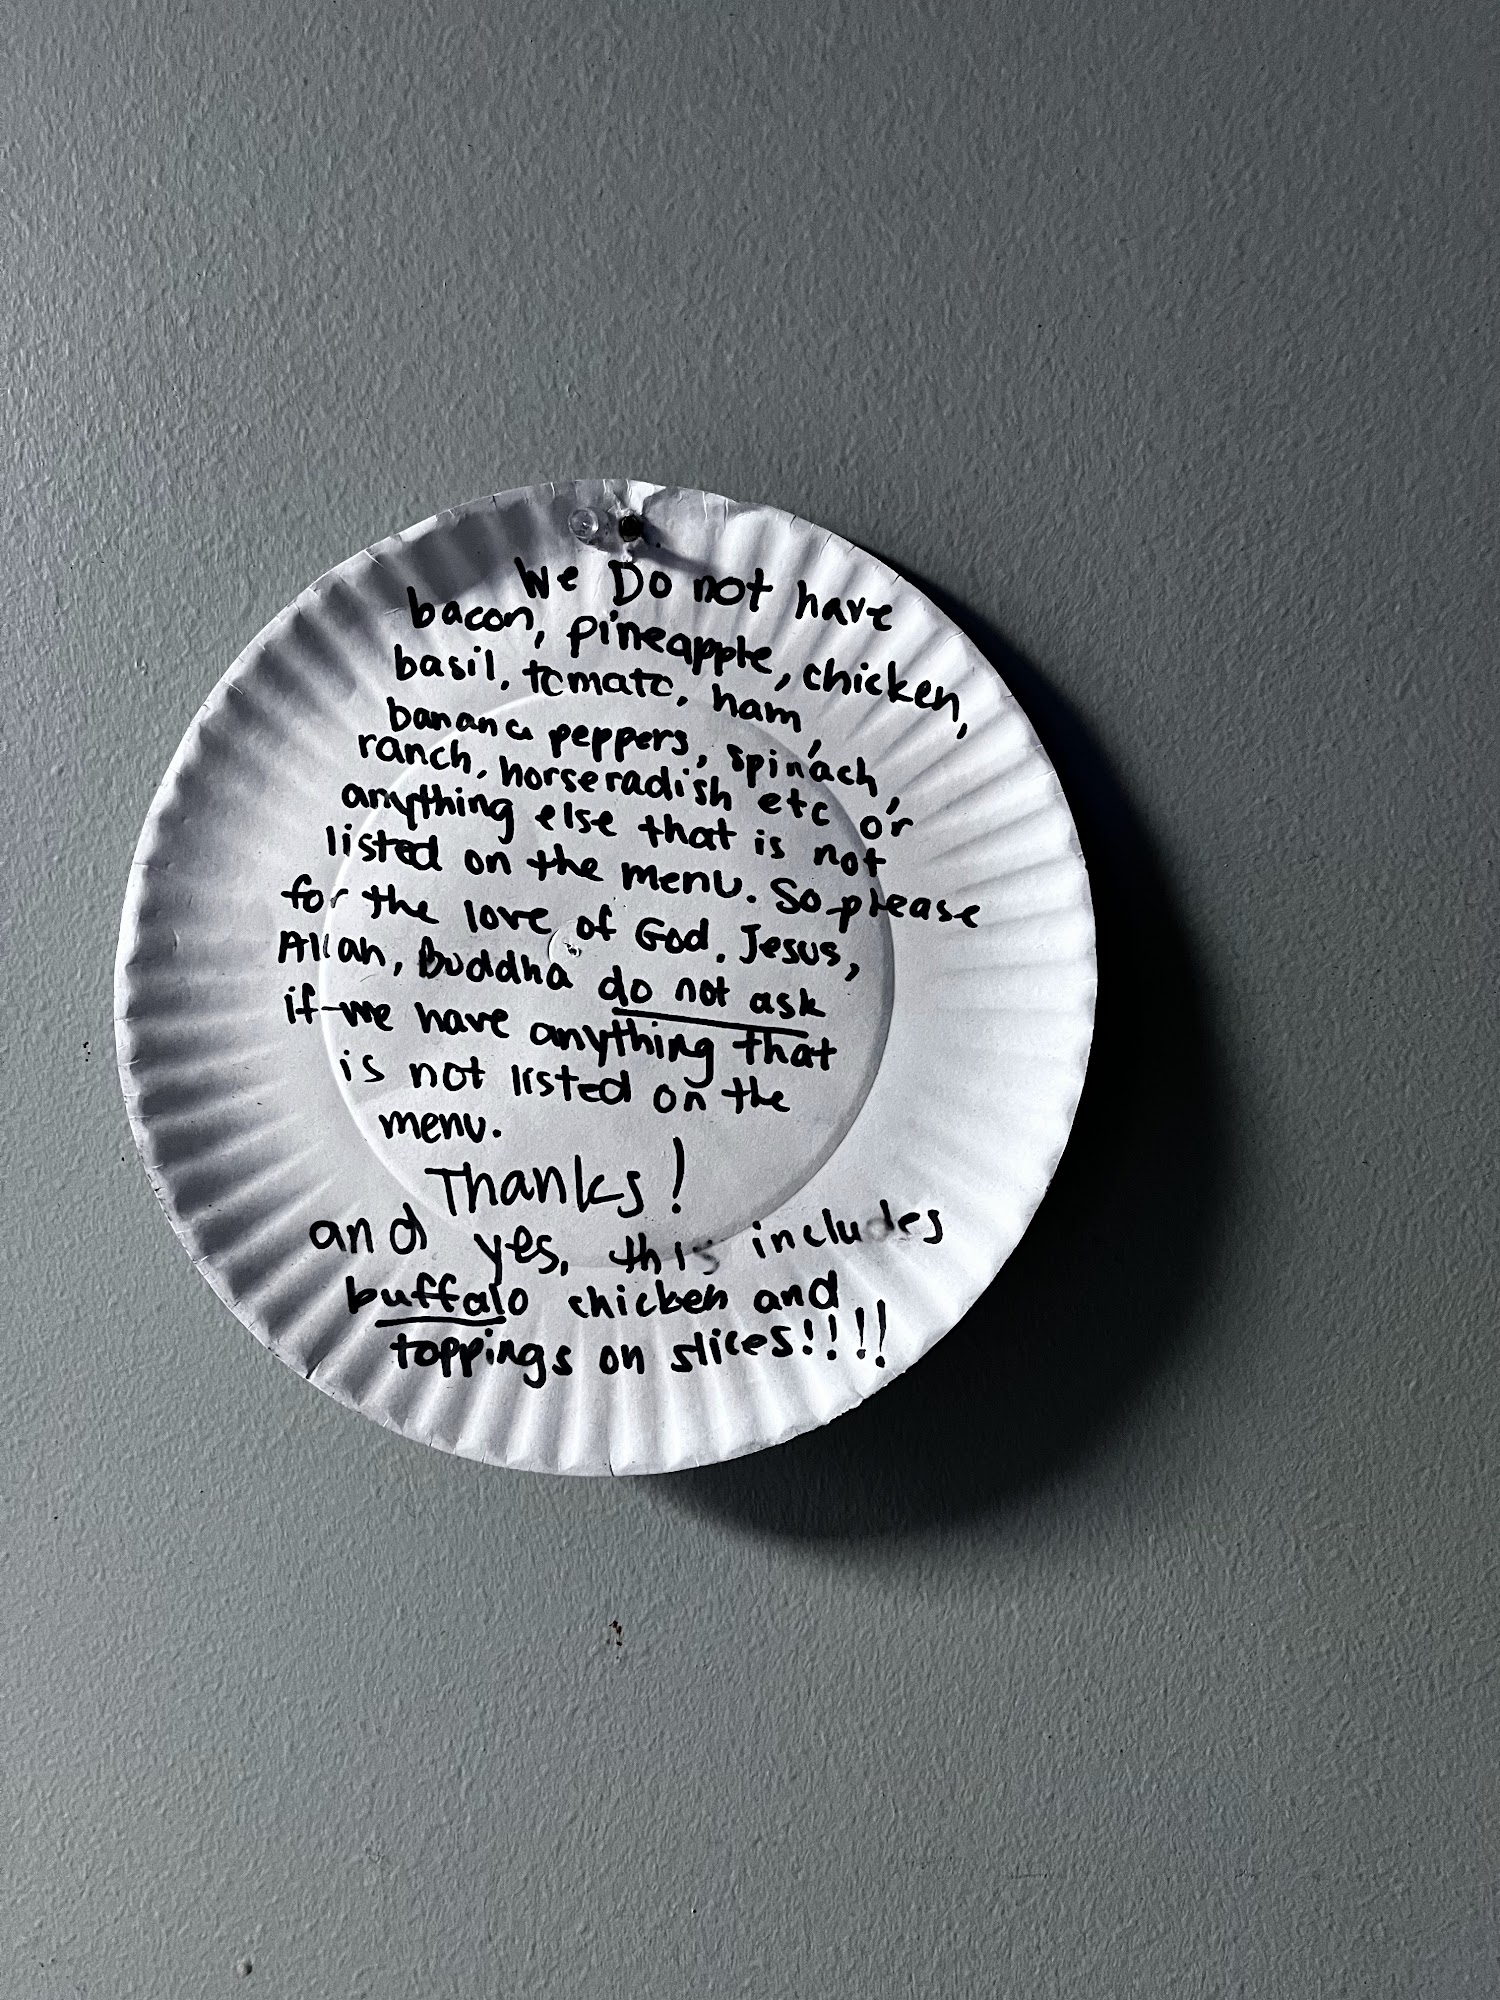 We Do not have
bacon, pineapple, chicken,
basil, tomato, ham,
banana peppers, spinach,
ranch, horseradish etc or
anything else that is not
listed on the menu. So please
for the love of God, Jesus,
Allah, Buddha do not ask
if we have anything that
is not listed on the
menu.
Thanks!
and yes, this includes
buffalo chicken and
toppings on slices!!!!